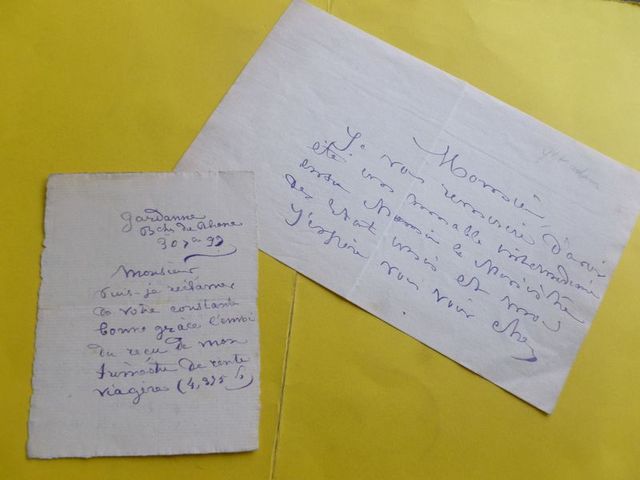 Gardanne
Bches du Rhone
30 7re 99
Monsieur
Puis-je réclamer
à votre constante
bonne grâce l'envoi
du reçu de mon
trimestre de rente
viagère (4,375 f)
Monsieur
Je vous remercie d'avoir
été mon aimable intermédiaire
entre Monsieur le Ministre
des États Unis et nous
J'espère vous voir chez